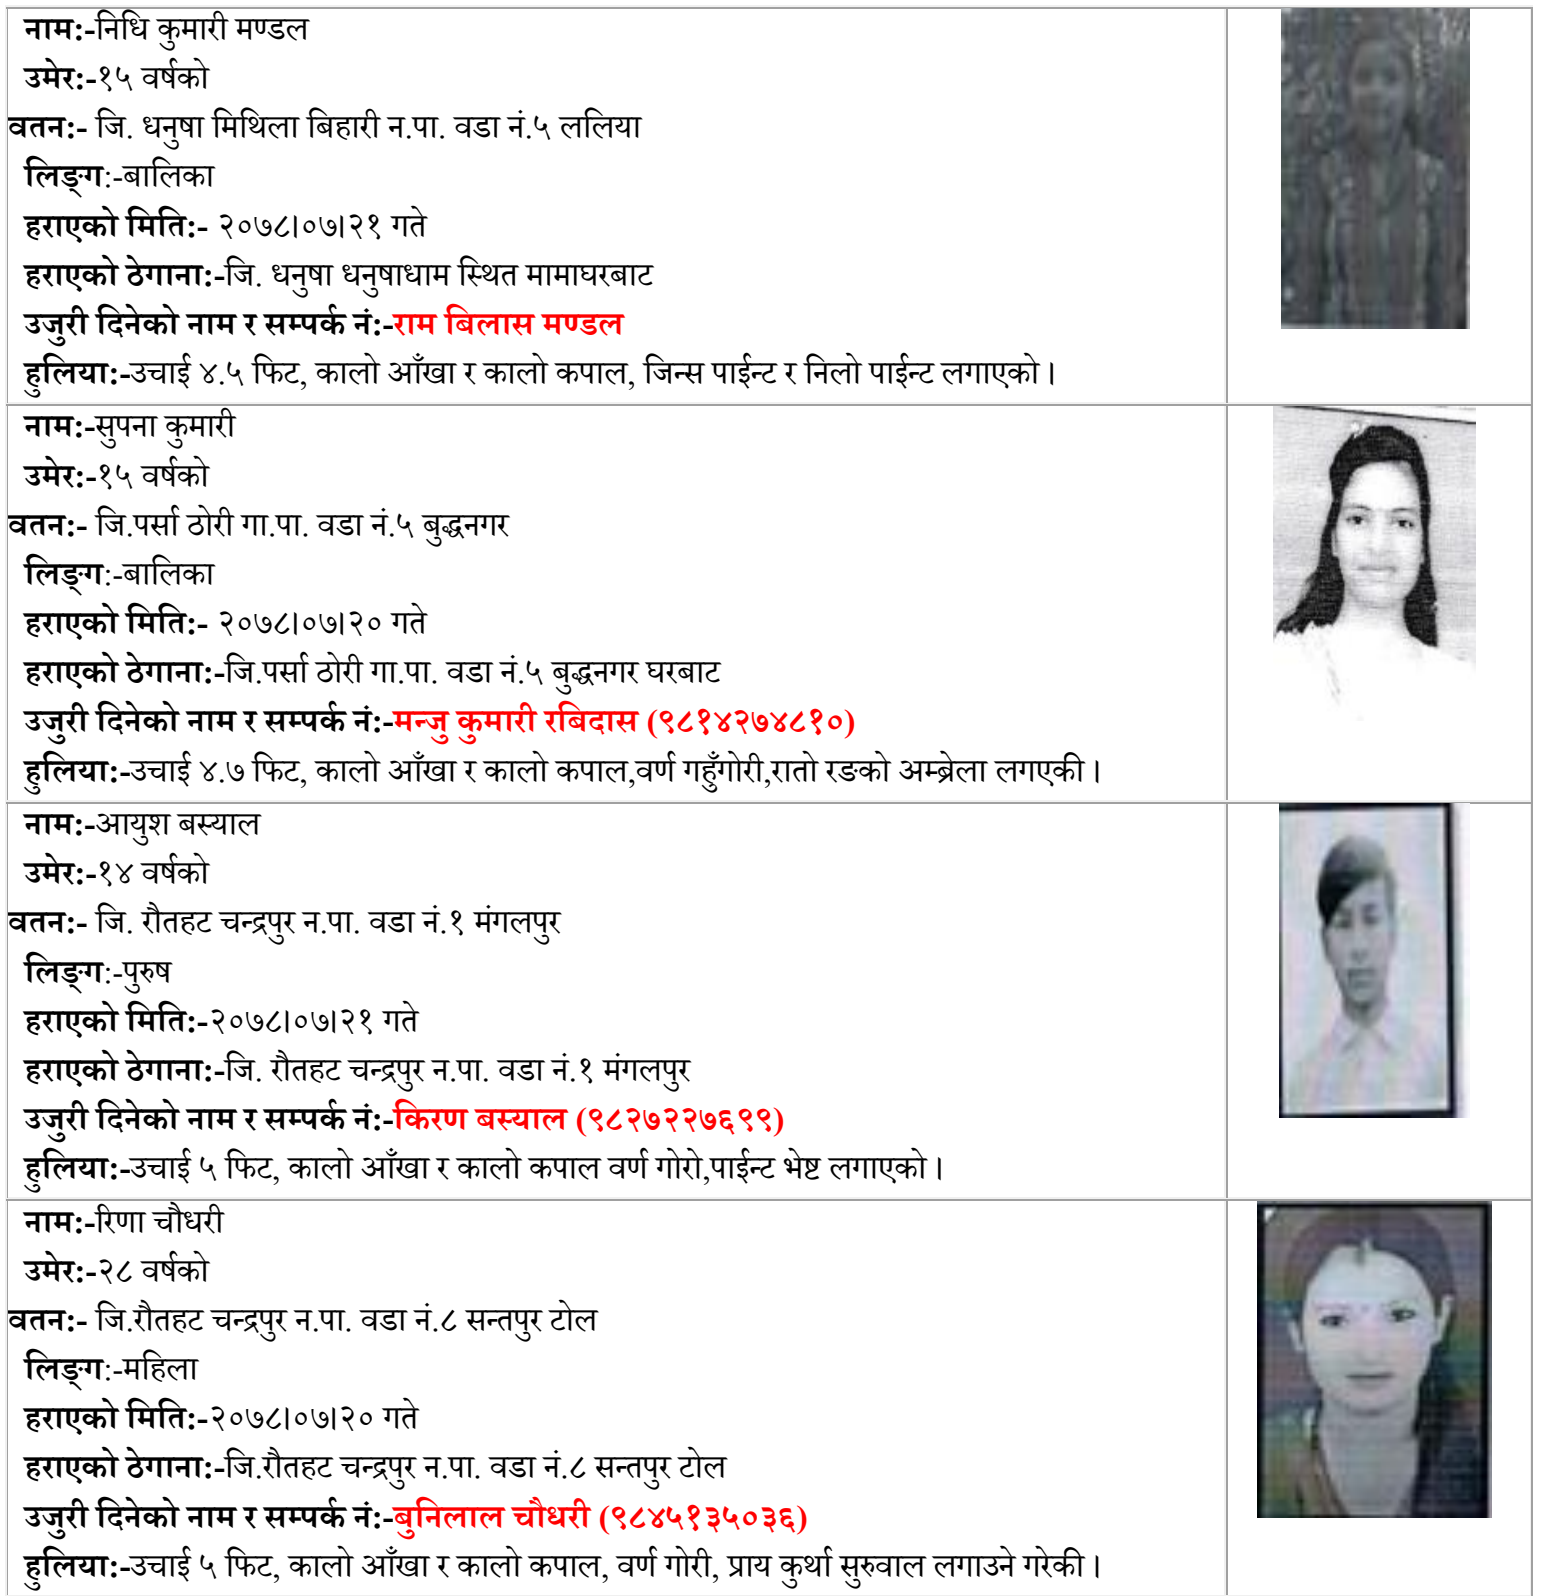 नाम:-निधि कुमारी मण्डल
उमेर:-१५ वर्षको
वतन:- जि. धनुषा मिथिला बिहारी न.पा. वडा नं.५ ललिया
लिङ्ग:-बालिका
हराएको मिति:- २०७८।०७।२१ गते
हराएको ठेगाना:-जि. धनुषा धनुषाधाम स्थित मामाघरबाट
उजुरी दिनेको नाम र सम्पर्क नं:-राम बिलास मण्डल
हुलिया:-उचाई ४.५ फिट, कालो आँखा र कालो कपाल, जिन्स पाईन्ट र निलो पाईन्ट लगाएको ।
नाम:-सुपना कुमारी
उमेर:-१५ वर्षको
वतन:- जि.पर्सा ठोरी गा.पा. वडा नं.५ बुद्धनगर
लिङ्ग:-बालिका
हराएको मिति:- २०७८।०७।२० गते
हराएको ठेगाना:-जि.पर्सा ठोरी गा.पा. वडा नं.५ बुद्धनगर घरबाट
उजुरी दिनेको नाम र सम्पर्क नं:-मन्जु कुमारी रबिदास (९८१४२७४८१०)
हुलिया:-उचाई ४.७ फिट, कालो आँखा र कालो कपाल,वर्ण गहुँगोरी,रातो रङको अम्ब्रेला लगएकी ।
नाम:-आयुश बस्याल
उमेर:-१४ वर्षको
वतन:- जि. रौतहट चन्द्रपुर न.पा. वडा नं.१ मंगलपुर
लिङ्ग:-पुरुष
हराएको मिति:-२०७८।०७।२१ गते
हराएको ठेगाना:-जि. रौतहट चन्द्रपुर न.पा. वडा नं.१ मंगलपुर
उजुरी दिनेको नाम र सम्पर्क नं:-किरण बस्याल (९८२७२२७६९९)
हुलिया:-उचाई ५ फिट, कालो आँखा र कालो कपाल वर्ण गोरो,पाईन्ट भेष्ट लगाएको ।
नाम:-रिणा चौधरी
उमेर:-२८ वर्षको
वतन:- जि.रौतहट चन्द्रपुर न.पा. वडा नं.८ सन्तपुर टोल
लिङ्ग:-महिला
हराएको मिति:-२०७८।०७।२० गते
हराएको ठेगाना:-जि.रौतहट चन्द्रपुर न.पा. वडा नं.८ सन्तपुर टोल
उजुरी दिनेको नाम र सम्पर्क नं:-बुनिलाल चौधरी (९८४५१३५०३६)
हुलिया:-उचाई ५ फिट, कालो आँखा र कालो कपाल, वर्ण गोरी, प्राय कुर्था सुरुवाल लगाउने गरेकी ।